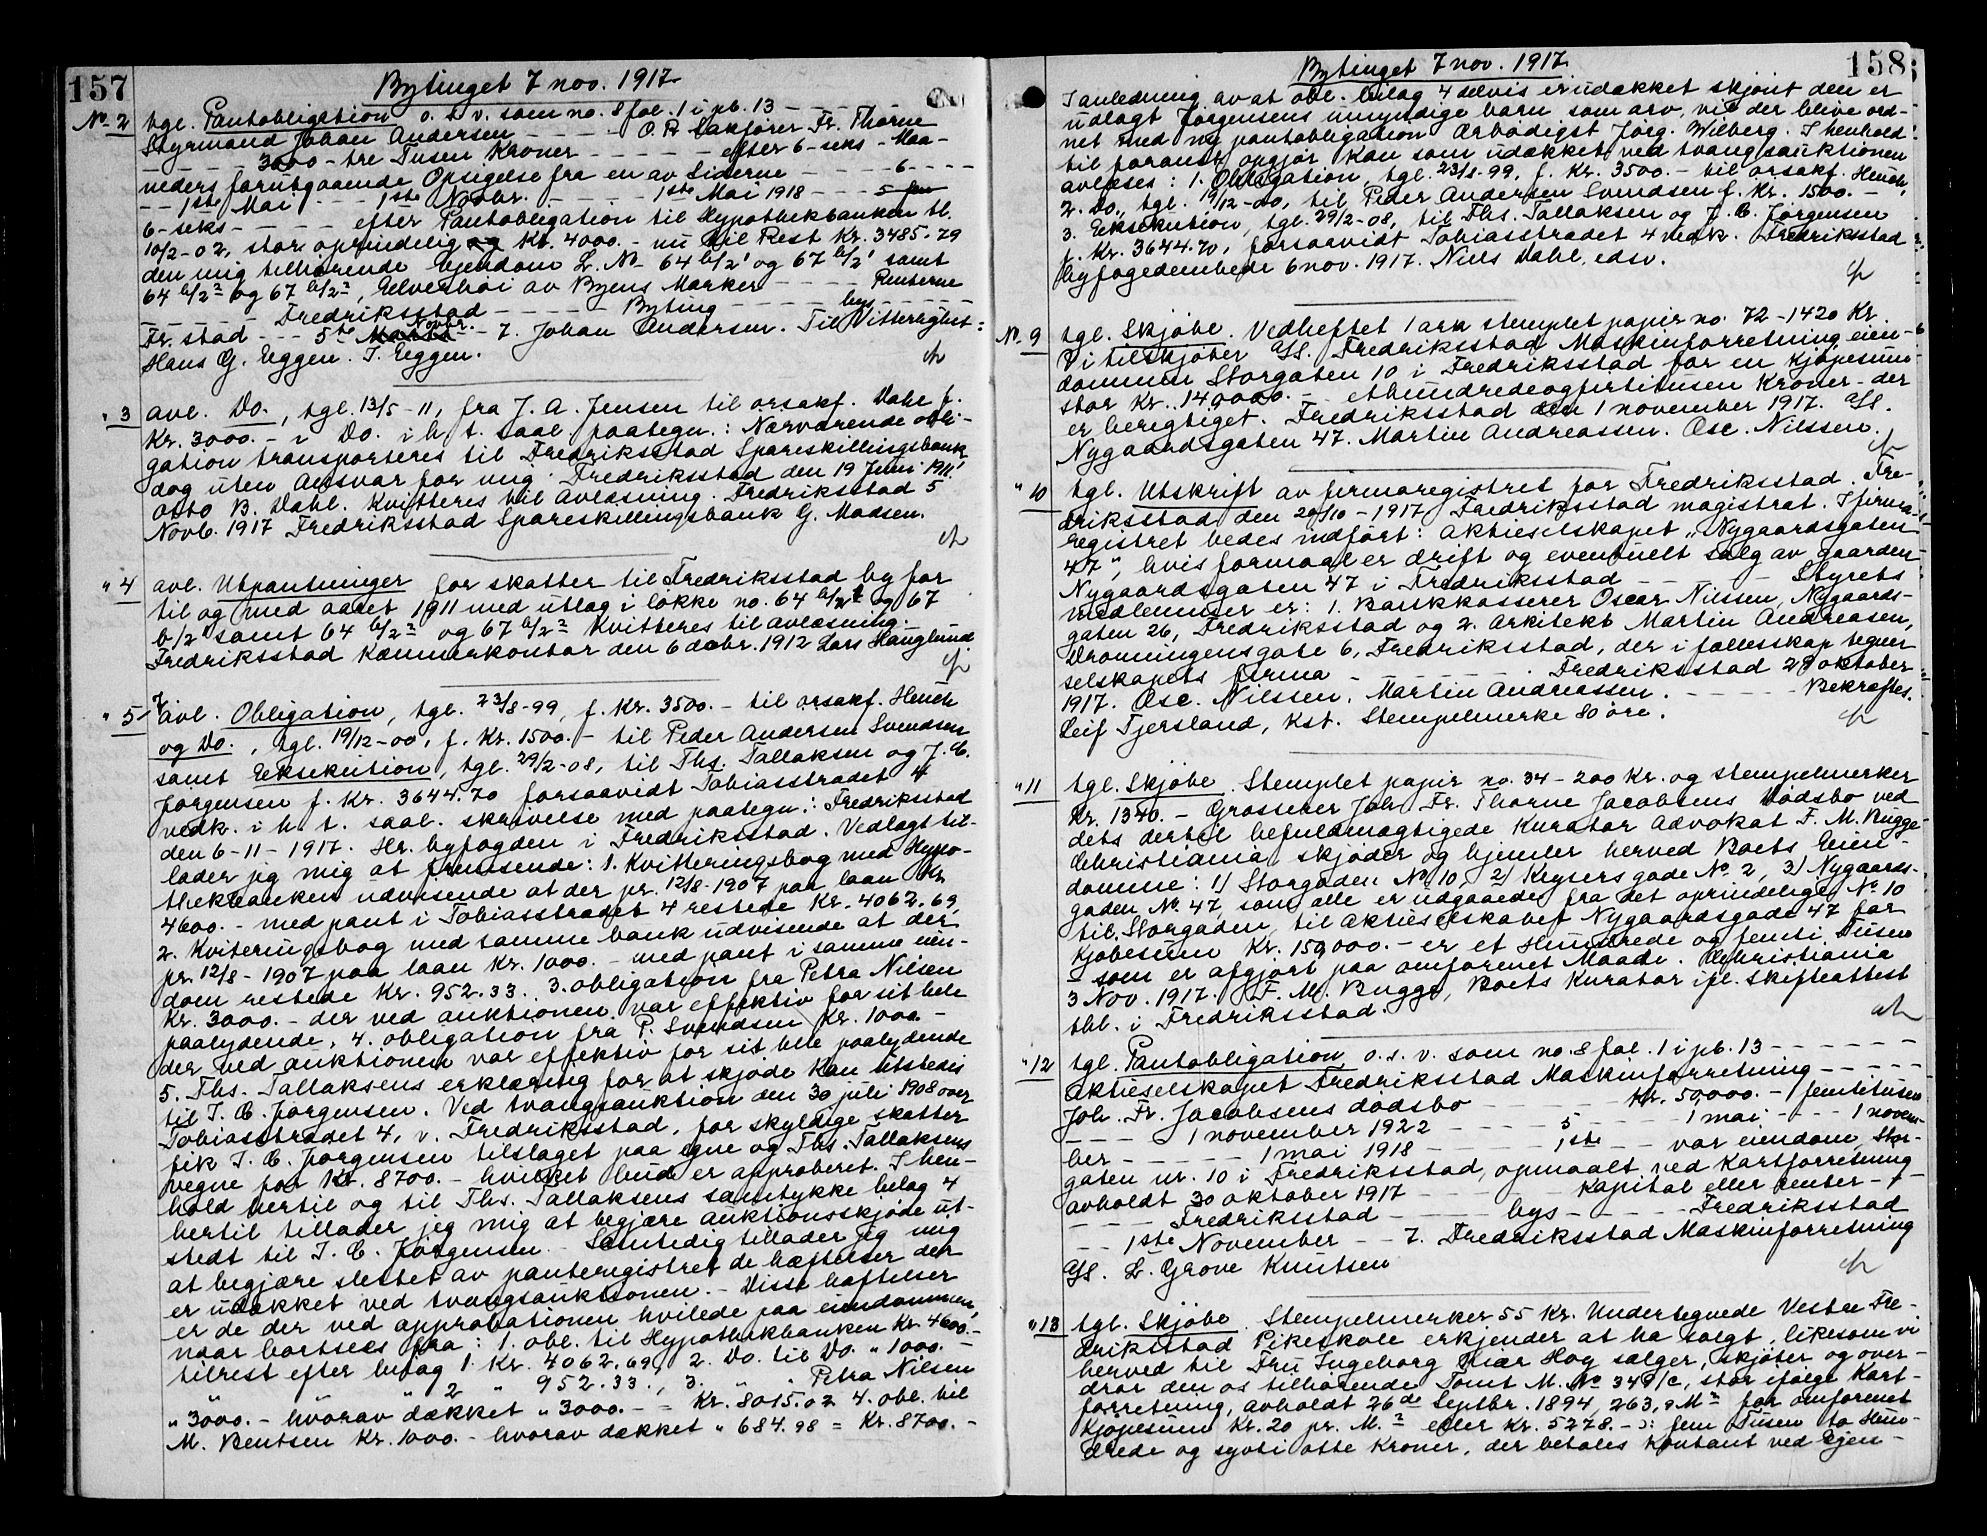 157
Bytinget 7 nov. 1917.
No. 2 tgl. Pantobligation o. s. v. som no. 8 fol. 1 i pb. 13 - - -
Styrmand Johan Andersen - - - - O. R. Sakfører Fr. Thorne
- - - 3000 - tre Tusen Kroner - - - - - efter 6 - seks - Maa-
neders forutgaaende Opsigelse fra en av Siderne - - - 6 - - - -
- - 1ste Mai - - - 1ste Novbr. - - - - 1ste Mai 1918 - - - 5 fem
6 - seks - - - - efter Pantobligation til Hypothekbanken tl.
10/2 - 02, stor oprindelig Kr. 4000. - nu til Rest Kr. 3485.79
den mig tilhørende Eiendom L. No. 64 b/2¹ og 67 b/2¹ samt
64 b/2² og 67 b/2², Elveshøi av Byens Marker - - - - - Renterne
- - - - - Fredriksstad - - - - - Byting - - - - - bys - - - - -
Fr.stad - - - 5te Novbr. - - 7. Johan Andersen. Til Vitterlighet:
Hans G. Eggen. T. Eggen.
" 3 avl. Do., tgl. 13/5 - 11, fra J. A. Jensen til orsakf. Dahl f.
Kr. 3000. - i Do. i h. t. saal. paategn.: Nærværende obli-
gation transporteres til Fredriksstad Spareskillingsbank
dog uten Ansvar for mig. Fredriksstad den 19 Juni 1911.
Otto B. Dahl. Kvitteres til Avlæsning. Fredriksstad 5
Novb. 1917 Fredriksstad Spareskillingsbank G. Madsen.
" 4 avl. Utpantninger for skatter til Fredriksstad by for
til og med aaret 1911 med utlæg i løkke no. 64 b/2¹ og 67
b/2¹ samt 64 b/2² og 67 b/2² Kvitteres til avlæsning.
Fredriksstad Kæmnerkontor den 6 decbr. 1912 Lars Hauglund.
" 5-7 avl. Obligation, tgl. 23/8 - 99, f. Kr. 3500. - til orsakf. Hench
og Do., tgl. 19/12 - 00, f. Kr. 1500. - til Peder Andersen Svendsen
samt Eksekution, tgl. 29/2 - 08, til Ths. Tallaksen og J. C.
Jørgensen f. Kr. 3644.70 forsaavidt Tobiasstrædet 4
vedk. i h. t. saal. skrivelse med paategn.: Fredriksstad
den 6 - 11 - 1917. Hr. byfogden i Fredriksstad. Vedlagt til-
lader jeg mig at fremsende: 1. Kvitteringsbog med Hypo-
thekbanken udvisende at der pr. 12/8 - 1907 paa laan Kr.
4600. - med pant i Tobiasstrædet 4 restede Kr. 4062.69,
2. Kviteringsbog med samme bank udvisende at der
pr. 12/8 - 1907 paa laan Kr. 1000. - med pant i samme eien-
dom restede Kr. 952.33. 3. obligation fra Petra Nilsen
Kr. 3000. - der ved auktionen var effektiv for sit hele
paalydende, 4. obligation fra P. Svendsen Kr. 1000. -
der ved auktionen var effektiv for sit hele paalydende
5. Ths. Tallaksens erklæring for at skjøde kan utstedes
til J. C. Jørgensen. Ved tvangsauktion den 30 juli 1908 over
Tobiasstrædet 4, v. Fredriksstad, for skyldige skatter
fik J. C. Jørgensen tilslaget paa egne og Ths. Tallaksens
vegne for Kr. 8700. - hvilket bud er approberet. I hen-
hold hertil og til Ths. Tallaksens samtykke bilag 4
hertil tillader jeg mig at begjære auktionsskjøde ut-
stedt til J. C. Jørgensen. - Samtidig tillader jeg mig
at begjære slettet av panteregistret de hæftelser der
er udækket ved tvangsauktionen. - Disse hæftelser
er de der ved approbationen hvilede paa eiendommen,
naar bortsees fra: 1. obl. til Hypothekbanken Kr. 4600. -
tilrest efter bilag 1. Kr. 4062.69, 2. Do. til Do. " 1000. -
" " " 2 " 952.33., 3. " " Petra Nilsen
" 3000. - hvorav dækket " 3000. - = Kr. 8015.02 4. obl. til
M. Bentsen Kr. 1000. - hvorav dækket " 684.98 = Kr. 8700. -
158
Bytinget 7 nov. 1917.
I anledning av at obl. bilag 4 delvis er udækket skjønt den er
udlagt Jørgensens umyndige barn som arv, vil der blive ord-
net med ny pantobligation Ærbødigst Jørg. Wiberg. I henhold
til foranst. opgjør kan som udækket ved tvangsauktionen
avlæses: 1. Obligation, tgl. 23/8 - 99, f. Kr. 3500. - til orsakf. Hench,
2. Do., tgl. 19/12 - 00, til Peder Andersen Svendsen f. Kr. 1500. -
3. Eksekution, tgl. 29/2 - 08, til Ths. Tallaksen og J. C. Jørgensen
f. Kr. 3644.70, forsaavidt Tobiasstrædet 4 vedk. Fredriksstad
byfogedembede 6 nov. 1917. Niels Dahl, edsv.
No. 9 tgl. Skjøte. Vedheftet 1 ark stemplet papir no. 72 - 1420 Kr.
Vi tilskjøter A/S. Fredriksstad Maskinforretning eien-
dommen Storgaten 10 i Fredriksstad for en kjøpesum
stor Kr. 140000. - ethundredeogfirtitusen Kroner - der
er berigtiget. Fredriksstad den 1 november 1917. A/S.
Nygaardsgaten 47. Martin Andreassen. Osc. Nilssen.
" 10 tgl. Utskrift av firmaregistret for Fredriksstad. Fre-
driksstad den 29/10 - 1917. Fredriksstad magistrat. I firma-
registret bedes indført: Aktieselskapet "Nygaardsgaten
47", hvis formaal er drift og eventuelt salg av gaarden
Nygaardsgaten 47 i Fredriksstad - - - - - Styrets
medlemmer er: 1. Bankkasserer Oscar Nilssen, Nygaards-
gaten 26, Fredriksstad og 2. Arkitekt Martin Andreasen,
Dronningensgate 6, Fredriksstad, der i fællesskap tegner
selskapets firma - - - - - - Fredriksstad 29 oktober
1917. Osc. Nilssen. Martin Andreassen. - - - - - Bekræftes.
Leif Tjersland, Kst. Stempelmerke 80 øre.
" 11 tgl. Skjøte. Stemplet papir no. 34 - 200 Kr. og stempelmerker
Kr. 1340. - Grosserer Joh. Fr. Thorne Jacobsens Dødsbo ved
dets dertil befuldmægtigede Kurator Advokat F. M. Bugge
Christiania skjøder og hjemler herved Boets Eien-
domme: 1) Storgaden No. 10, 2) Keysers gade No. 2, 3) Nygaards-
gaden No. 47, som alle er udgaaede fra det oprindelige No. 10
til Storgaden, til Aktieselskabet Nygaardsgade 47 for
Kjøbesum Kr. 150000. - er et Hundrede og femti Tusen
- som er afgjort paa omforenet Maade. Christiania
3 Nov. 1917. F. M. Bugge, Boets Kurator ifl. Skifteattest
tbl. i Fredriksstad.
" 12 tgl. Pantobligation o. s. v. som no. 8 fol. 1 i pb. 13 - - - - - -
Aktieselskapet Fredriksstad Maskinforretning - - - - -
Joh. Fr. Jacobsens dødsbo - - - - - Kr. 50000. - femtitusen
- - - - 1 november 1922 - - - - 5 - - - - 1 mai - - - - 1 novem-
ber - - - - - 1 mai 1918 - - - - 1ste - - - vor eiendom Stor-
gaten nr. 10 i Fredriksstad, opmaalt ved Kartforretning
avholdt 30 oktober 1917 - - - - - Kapital eller renter - -
- - - - Fredriksstad - - - - bys - - - - - Fredriksstad
- - 1ste November - - 7. Fredriksstad Maskinforretning
A/S. L. Grove Knutsen
" 13 tgl. Skjøte. Stempelmerker 55 Kr. Undertegnede Vestre Fre-
driksstad Pikeskole erkjender at ha solgt, likesom vi
herved til Fru Ingeborg Thiær Hog sælger, skjøter og over-
drar den os tilhørende Tomt M. No 349/c, stor ifølge Kart-
forretning, avholdt 26de Septbr. 1894, 263,9 M² for omforenet
Kjøpesum Kr. 20 pr. M.² eller Kr. 5278. - ɔ: fem Tusen to Hun-
drede og sytti otte Kroner, der betales kontant ved Eien-